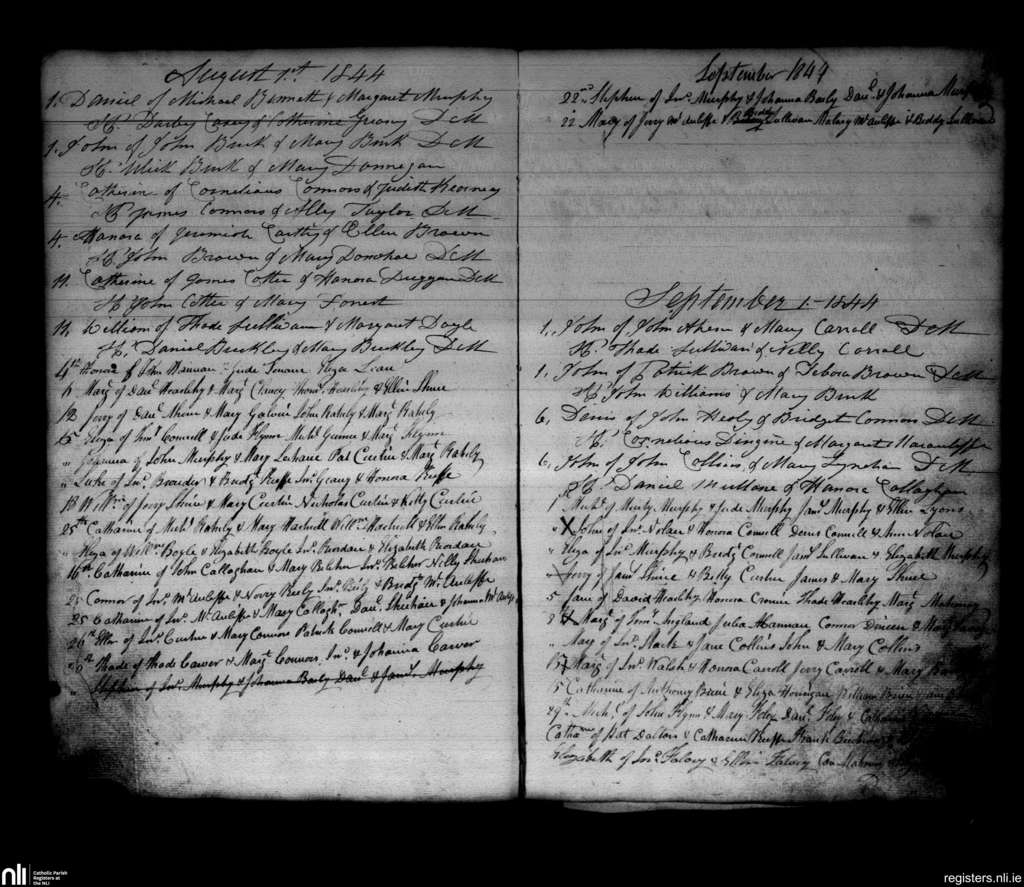 August 1st 1844
1. Daniel of Michael Bennett & Margaret Murphy
Sp. Darby Casey & Catherine Geany DcM
1. John of John Burk & Mary Burk DcM
Sp. Ulick Burk & Mary Donnegan
4. Catherine of Cornelious Connors & Judith Kearney
Sp. James Connors & Alley Taylor DcM
4. Hanora of Jeremiah Carthy & Ellen Brown
Sp. John Brown & Mary Donohoe DcM
11. Catherine of James Cotter & Hanora Duggan DcM
Sp. John Cotter & Mary Forrest
11. William of Thade Sullivan & Margaret Doyle
Sp. Daniel Buckley & Mary Buckley DcM
4th Honora of John Hannan Jude Eliza
of Danl & Margt Clancy Thomas & Ellen Shine
12 Jerry of Danl Shine & Mary Galvin John Rahely & Margt Rahely
25 Eliza of Connell & Jude Flynn Michl & Margt Flynn
" Joanna of John Murphy & Mary Pat Curtin & Margt Rahely
" Luke of Jno. & Bridgt Keeffe Jno. Geany & Honora Keeffe
18 Willm of Jerry Shine & Mary Curtin Nicholas Curtin & Kitty Curtin
25th Catharine of Michl Rahely & Mary Hachett Willm Hachett & Ellen Rahely
" Eliza of Willm Boyle & Elizabeth Boyle Jno. Reordan & Elizabeth Reordan
16th Catharine of John Callaghan & Mary Belcher Jno. Belcher Nelly Sheehan
25 Connor of Jno. McAuliffe & Nory Jno. & Bridgt McAuliffe
25 Catharine of Jno. McAuliffe & Mary Callaghn Danl Sheehan & Johanna McAuliffe
26th Ellen of Jno. Curtin & Mary Connors Patrick Connell & Mary Curtin
Thade of Thade Carver & Margt Connors Jno. & Johanna Carver
" Stephen of Jno. Murphy & Johanna Barly Danl & Murphy
September 1844
22nd Stephen of Jno. Murphy & Johanna Barly Danl & Johanna Murphy
22 Mary of Jerry McAuliffe & Biddy Sullivan McAuliffe & Biddy Sullivan
September 1. 1844
1, John of John Ahern & Mary Carroll DcM
Sp. Thade Sullivan & Nelly Carroll
1, John of Patrick Brown & Debora Brown DcM
Sp. John Williams & Mary Burk
6, Denis of John Healy & Bridget Connors DcM
Sp. Cornelious & Margaret
6, John of John Collins & Mary Lynehan DcM
Sp. Daniel Mullane & Hanora Callaghan
1 Michl of Murty Murphy & Jude Murphy Jams Murphy & Ellen Lyons
" X John of Jno. Nolan & Honora Connell Denis Connell & Ann Nolan
" Eliza of Jno. Murphy & Bridgt Connell Jams Sullivan & Elizabeth Murphy
" Jerry of Jams Shine & Betty Curtin James & Mary Shine
5 Jane of David & Honora Thade & Margt Mahony
8 X Margt of England Julia Hannan Connor &
" Mary of Jno. & Jane Collins John & Mary Collins
Margt of Jno. Walsh & Honora Carroll Jerry Carroll & Mary
15 Catharine of Anthony & Eliza Honnigan William Brien
29th Michl of John Flynn & Mary Foley Danl Foley & Catharine
Catha. of Pat Dalton & Catharine Keeffe Frank
Elizabeth of Jno. Falvey & Ellen Falvey Con Mahony
nli
Catholic Parish
Registers at
the NLI
registers.nli.ie